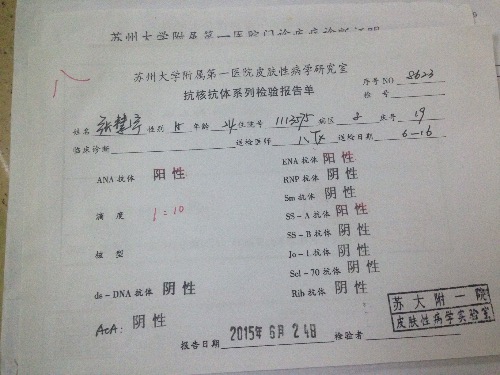 苏州大学附属第一医院门诊疾病诊断证明
苏州大学附属第一医院皮肤性病学研究室
序号NO 8623
抗核抗体系列检验报告单
检 号
姓名 性别 年龄 24 住院号 1113575 病区 2 床号 19
临床诊断 送检医师 送检日期 6-16
ANA抗体 阳性
ENA抗体 阳性
RNP抗体 阴性
Sm抗体 阴性
滴度 1:10
SS-A抗体 阳性
SS-B抗体 阴性
核型
Jo-1抗体 阴性
Scl-70抗体 阴性
ds-DNA抗体 阴性
Rib抗体 阴性
ACA: 阴性
苏大附一院
皮肤性病学实验室
报告日期 2015年6月24日 检验者